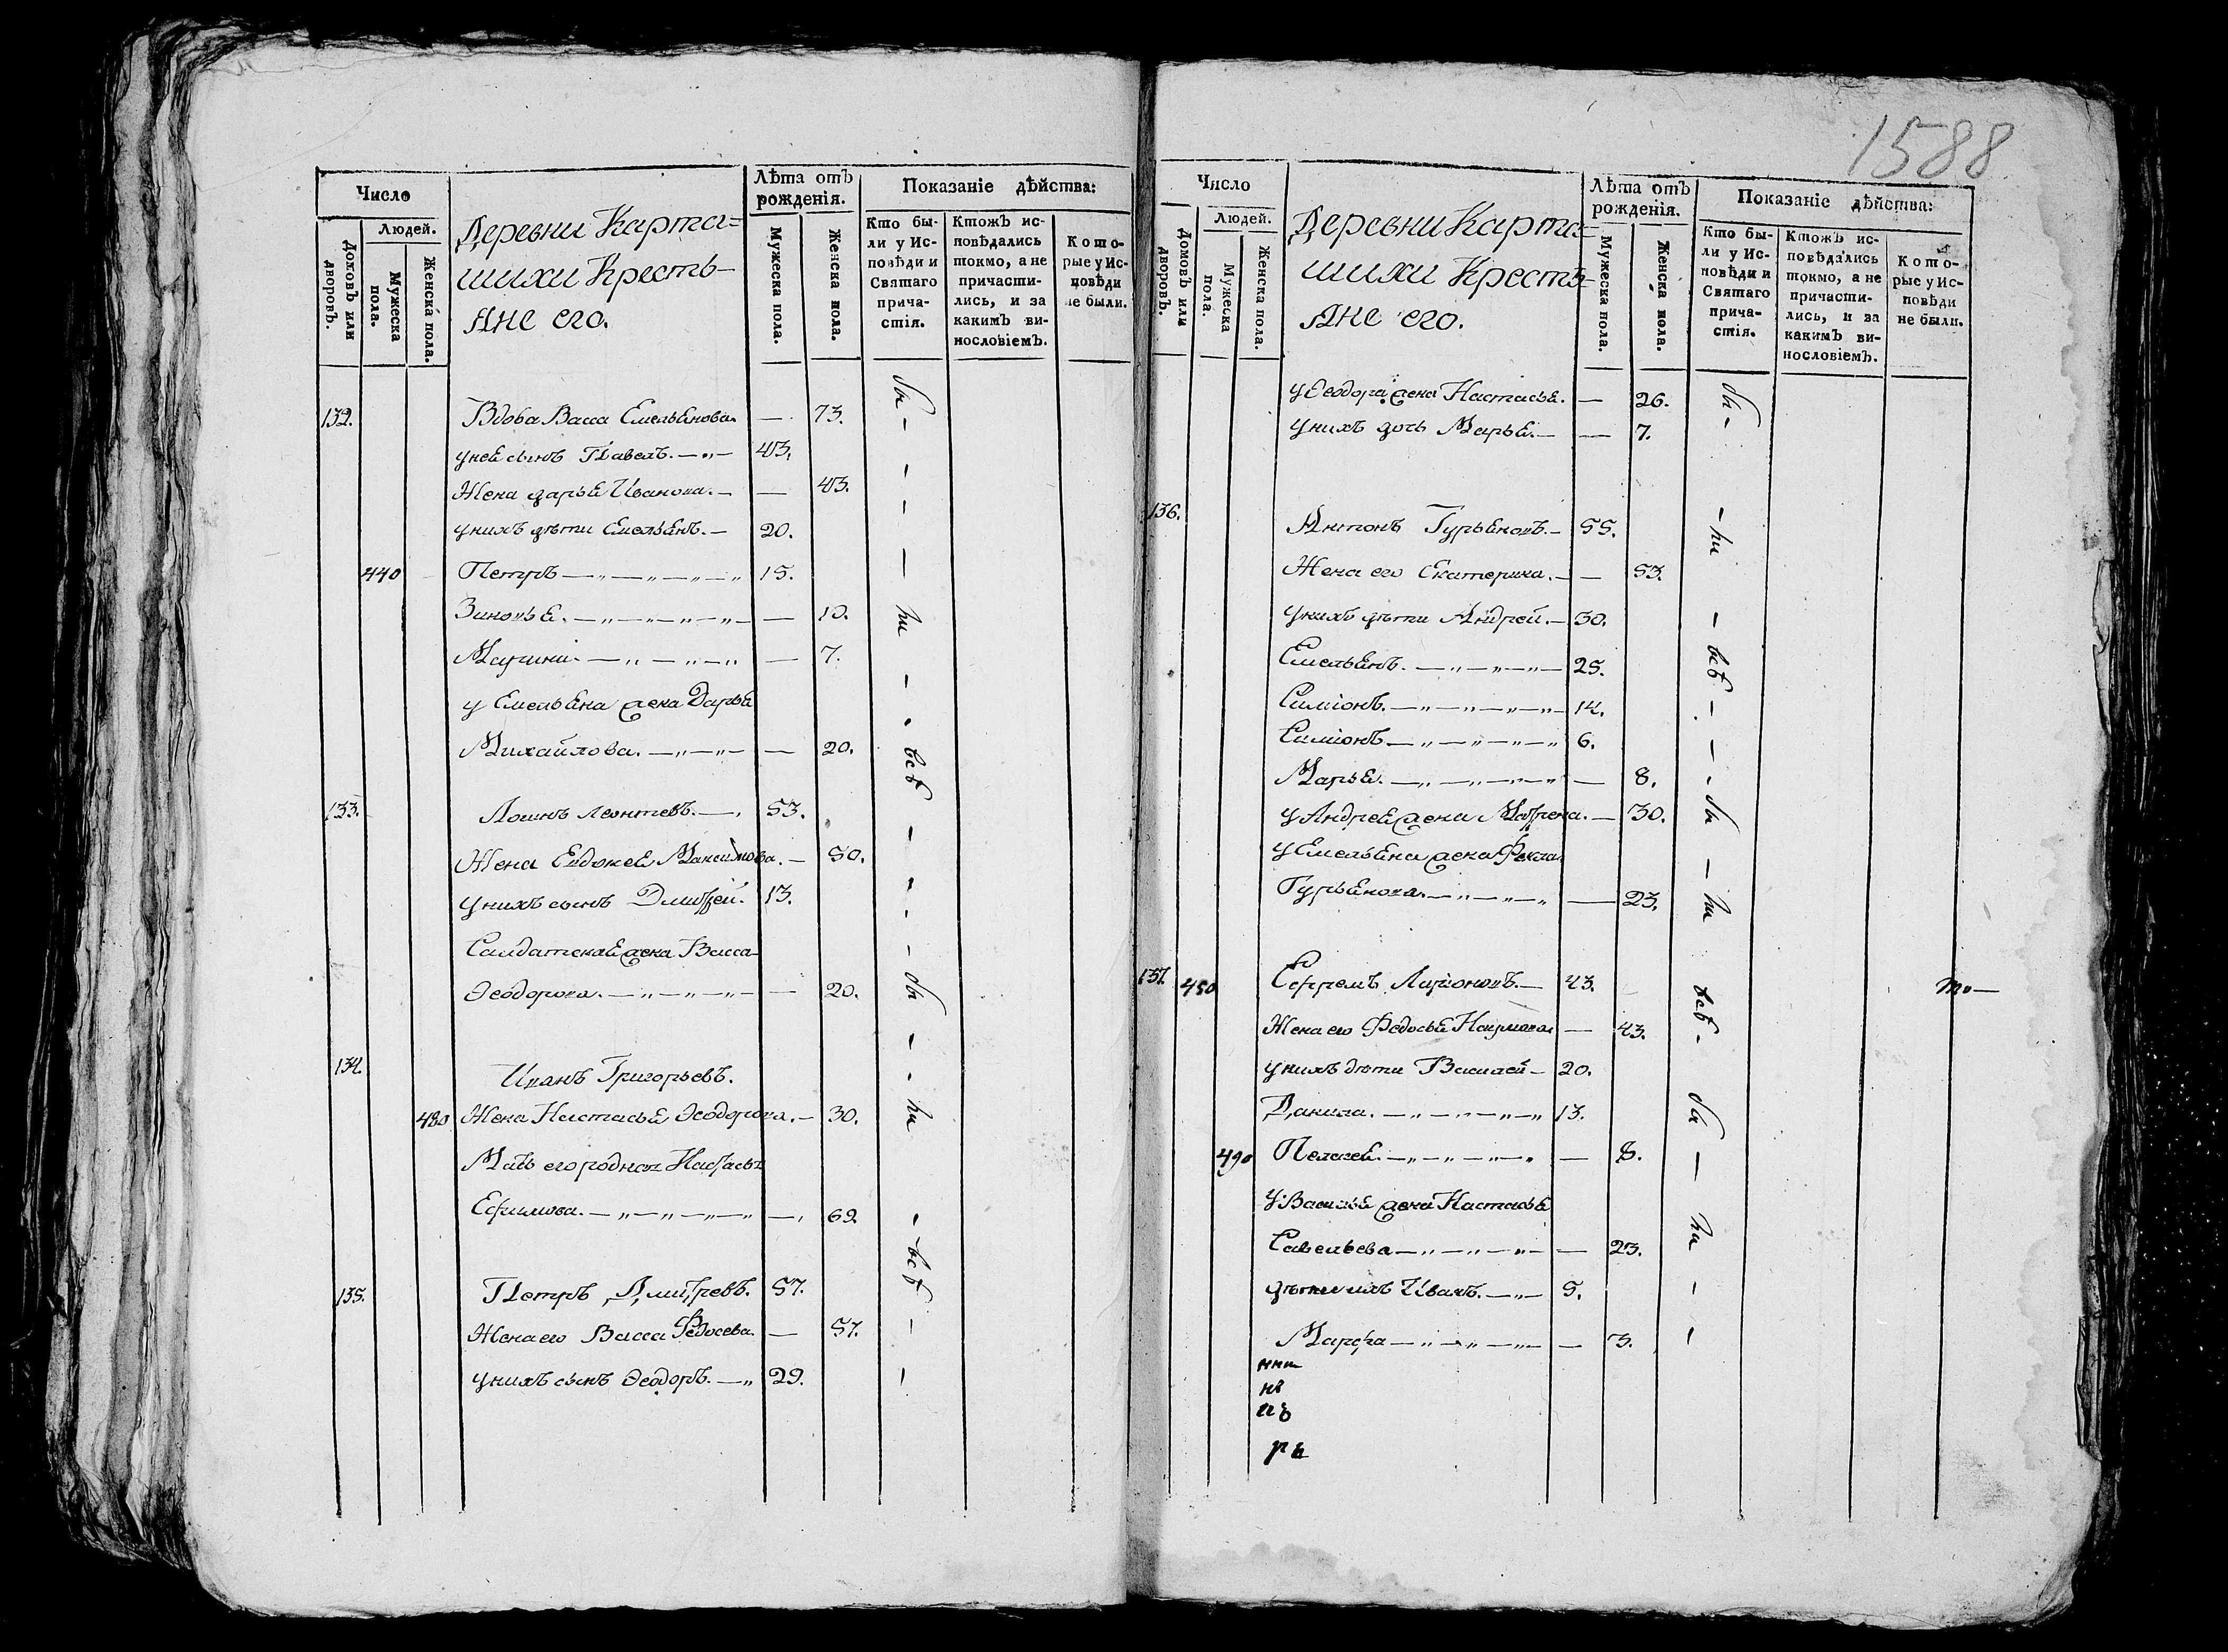 1588
Число
Людей.
Домовъ или дворовъ.
Мужеска пола.
Женска пола.
Деревни Карта=
шихи Кресть-
яне его.
Лѣта отъ рожденія.
Мужеска пола.
Женска пола.
Показаніе дѣйства:
Кто бы-
ли у Ис-
повѣди и
Святаго
прича-
стія.
Ктожъ ис-
повѣдались
токмо, а не
причасти-
лись, и за
какимъ ви-
нословіемъ.
Кото-
рые у Ис-
повѣди
не были.
132. Вдова Васса Емельянова. — 73.
у ней сынъ Павелъ. — 43.
Жена дарья Иванова. — 43.
у нихъ дѣти Емельянъ. — 20.
440 Петръ — 15.
Зиновья. — 10.
Марина. — 7.
у Емельяна жена Дарья
Михайлова. — 20.
133. Логинъ Леонтевъ. — 53.
Жена Евдокея Максимова. — 50.
у нихъ сынъ Дмитрей. 13.
Салдатская жена Васса
Ѳеодорова. — 20.
134. Иванъ Григорьевъ.
480 Жена Настасья Ѳеодорова. — 30.
Мать его родная Настасья
Ефимова. — 69.
135. Петръ Дмитревъ. 57.
Жена его Васса Федосева. — 57.
у нихъ сынъ Ѳеодоръ. — 29.
бы-
ли
всѣ
бы
ли
всѣ
Число
Людей.
Домовъ или дворовъ.
Мужеска пола.
Женска пола.
Деревни Карта=
шихи Кресть=
яне его.
Лѣта отъ рожденія.
Мужеска пола.
Женска пола.
Показаніе дѣйства:
Кто бы-
ли у Ис-
повѣди и
Святаго
прича-
стія.
Ктожъ ис-
повѣдались
токмо, а не
причасти-
лись, и за
какимъ ви-
нословіемъ.
Кото-
рые у Ис-
повѣди
не были.
у Ѳеодора жена Настасья. — 26.
у нихъ дочь Марья. — 7.
136. Антонъ Гурьяновъ. — 55.
Жена его Екатерина. — 53.
у нихъ дѣти Андрей. — 30.
Емельянъ. — 25.
Симіонъ. — 14.
Симіонъ — 6.
Марья. — 8.
у Андрея жена Матрена. — 30.
у Емельяна жена Фекла
Гурьянова. — 23.
137. 450 Ефремъ Ларіоновъ. — 43.
Жена его Федосья Наумова — 43.
у нихъ дѣти Василей — 20.
Данила. — 13.
490 Пелагея. — 8.
у Василья жена Настасья
Савельева — 23.
дѣти ихъ Иванъ. — 5.
Марфа — 3.
бы-
ли
всѣ
бы
ли
всѣ
бы
ли
то